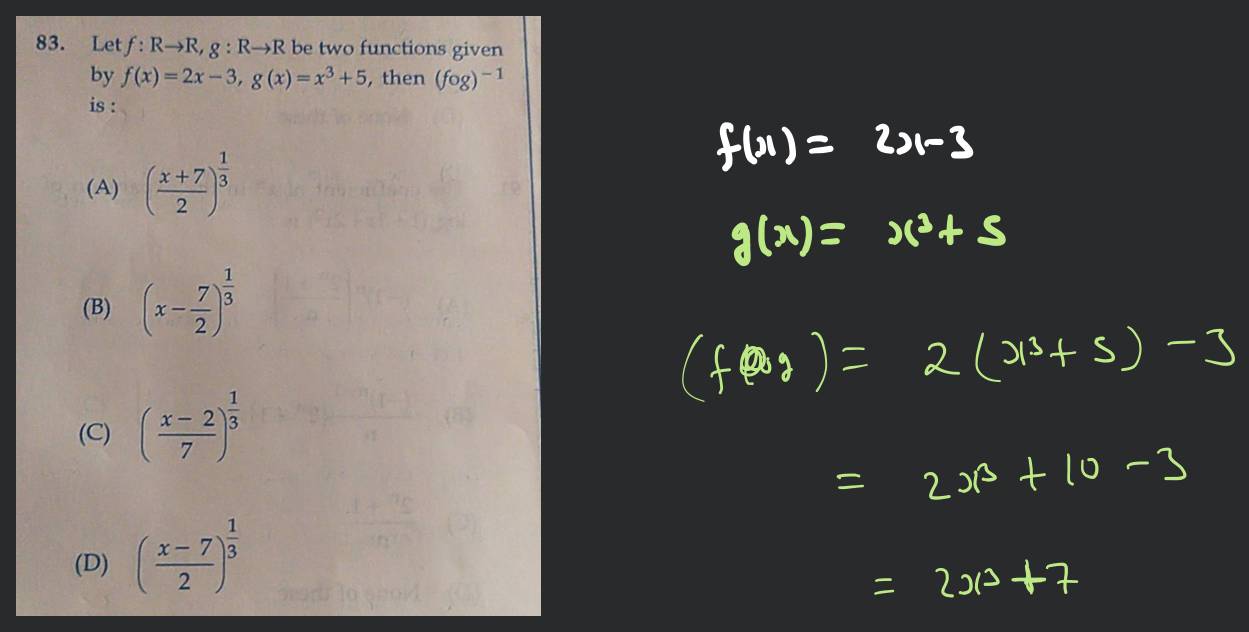 83. Let f : R→R, g : R→R be two functions given
by f(x) = 2x – 3, g(x) = x³ + 5, then (fog)⁻¹
is :
(A) ((x + 7)/2)^(1/3)
(B) (x – 7/2)^(1/3)
(C) ((x – 2)/7)^(1/3)
(D) ((x – 7)/2)^(1/3)
f(x) = 2x-3
g(x) = x³ + 5
(fog) = 2(x³ + 5) - 3
= 2x³ + 10 - 3
= 2x³ + 7